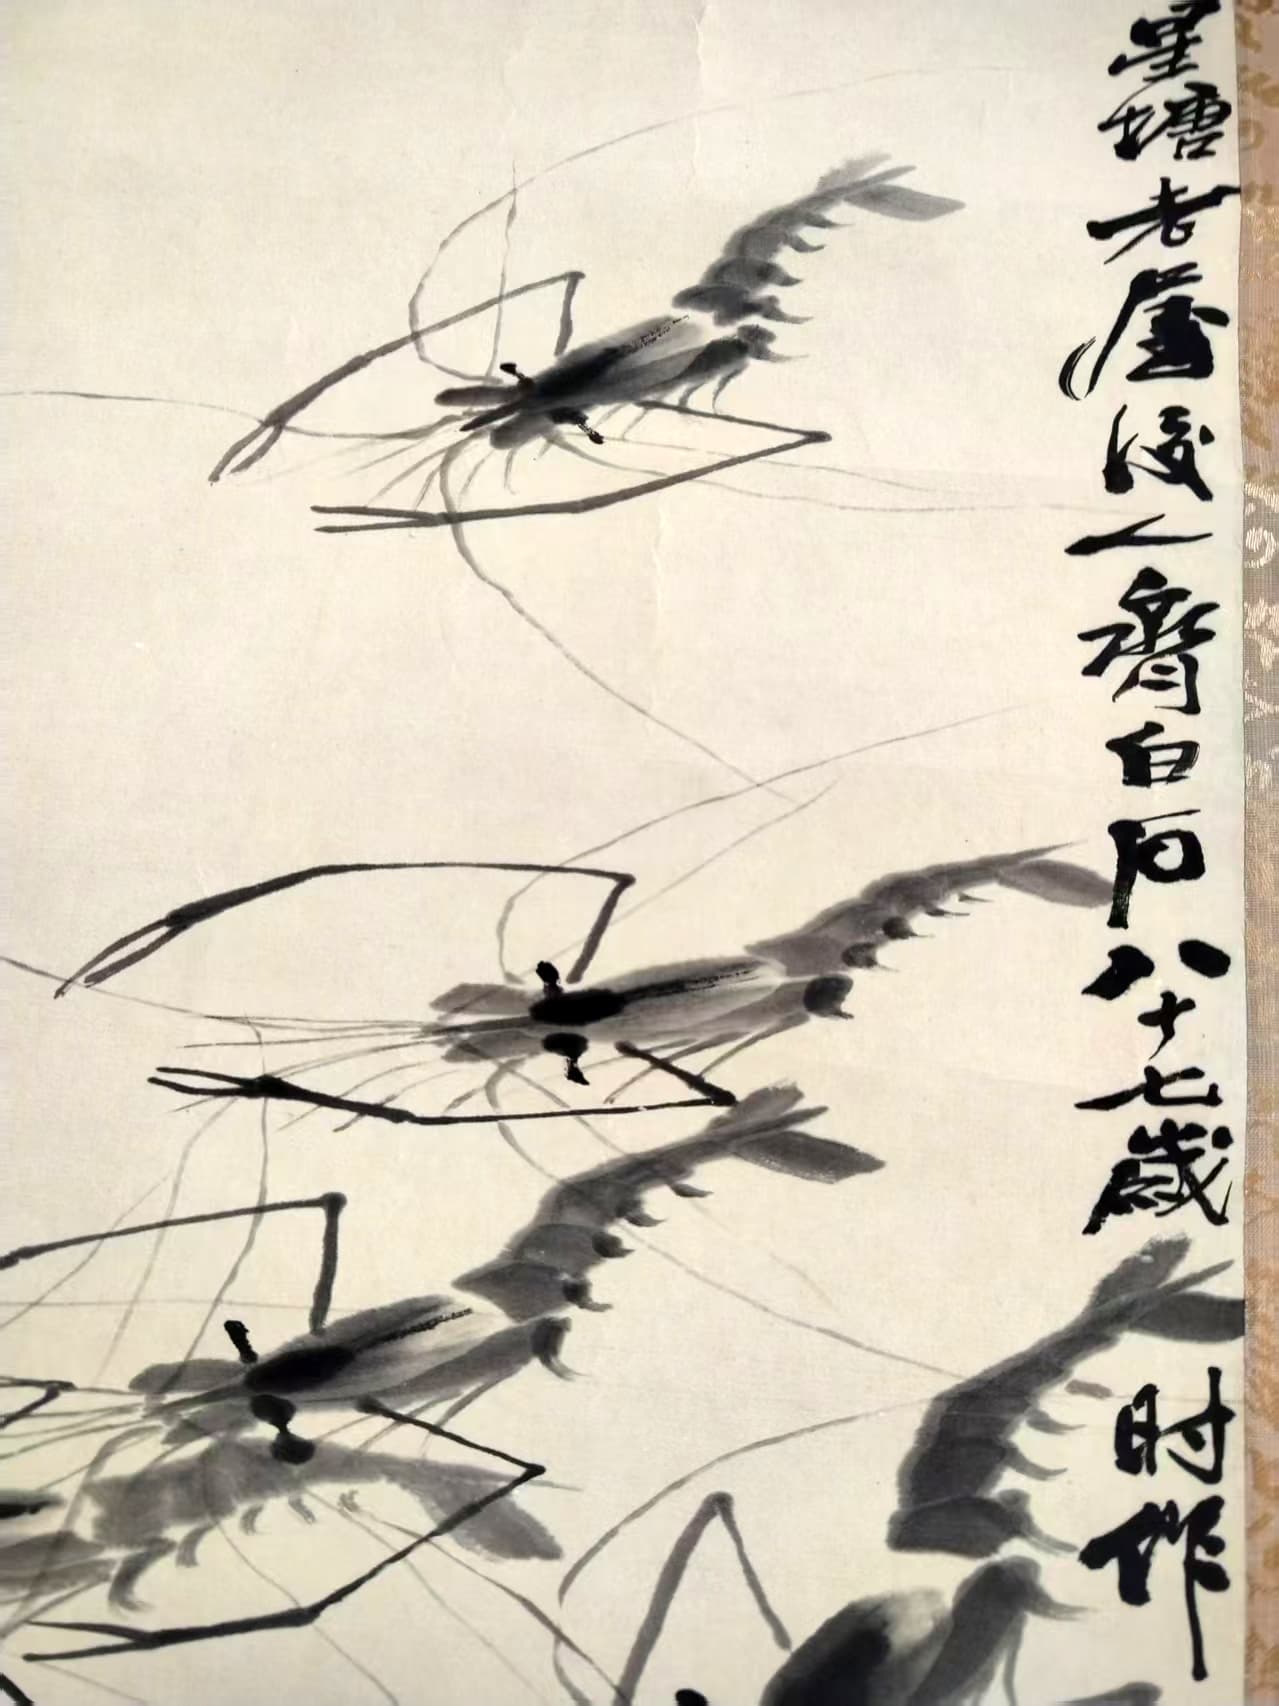 星塘老屋後人齊白石八十七歲時作